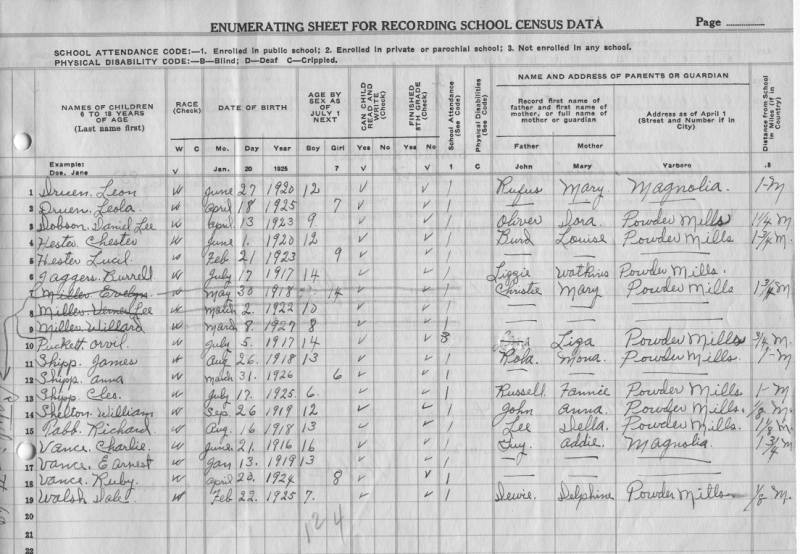 ENUMERATING SHEET FOR RECORDING SCHOOL CENSUS DATA Page
SCHOOL ATTENDANCE CODE:—1. Enrolled in public school; 2. Enrolled in private or parochial school; 3. Not enrolled in any school.
PHYSICAL DISABILITY CODE:—B—Blind; D—Deaf C—Crippled.
NAMES OF CHILDREN 6 TO 18 YEARS OF AGE (Last name first)
RACE (Check)
DATE OF BIRTH
AGE BY SEX AS OF JULY 1 NEXT
CAN CHILD READ AND WRITE (Check)
FINISHED 8TH GRADE (Check)
School Attendance (See Code)
Physical Disabilities (See Code)
NAME AND ADDRESS OF PARENTS OR GUARDIAN
Record first name of father and first name of mother, or full name of mother or guardian
Address as of April 1 (Street and Number if in City)
Distance from School in Miles (if in Country)
W C Mo. Day Year Boy Girl Yes No Yes No Father Mother
Example: Doe, Jane V Jan. 20 1925 7 V V 1 C John Mary Varboro .8
1 Druen, Leon W June 27 1920 12 ✓ ✓ 1 Rufus Mary Magnolia. 1-M
2 Druen, Leola. W April 18 1925 7 ✓ ✓ 1
3 Dobson Daniel Lee W April 13 1923 9 ✓ ✓ 1 Oliver Dora Powder Mills 1¼ M
4 Hester Chester W June 1. 1920 12 ✓ ✓ 1 Burd Louise Powder Mills 1-¾ M.
5 Hester Lucil W Feb 21 1923 9 ✓ ✓ 1
6 Jaggers Burrell W July 17 1917 14 ✓ ✓ 1 Lizzie Watkins Powder Mills.
7 Miller Evelyn W May 30 1918 14 ✓ ✓ 1 Christie Mary Powder Mills 1-¾ M
8 Miller Verner Lee W March 2. 1922 10 ✓ ✓ 1
9 Miller Willard W March 8. 1927 8 ✓ ✓ 1
10 Puckett Orvil W July 5. 1917 14 ✓ ✓ 3 Liza Powder Mills ¾ M
11 Shipp, James W Aug 26. 1918 13 ✓ ✓ 1 Rola. Mona. Powder Mills. 1-M
12 Shipp, Anna W March 31. 1926 6 ✓ ✓ 1
13 Shipp, Cles. W July 17. 1925. 6. ✓ ✓ 1 Russell Fannie Powder Mills 1-M
14 Shelton William W Sep 26 1919 12 ✓ ✓ 1 John Anna. Powder Mills. ⅛ M.
15 Tabb. Richard. W Aug. 16 1918 13 ✓ ✓ 1 Lee Della. Powder Mills. 1⅛ M.
16 Vance, Charlie. W June. 21. 1916 16 ✓ ✓ 1 Guy. Addie. Magnolia. 1-¾ M
17 Vance, Earnest W Jan 13. 1919 13 ✓ ✓ 1
18 Vance. Ruby. W April 20. 1924 8 ✓ ✓ 1
19 Walsh Dale W Feb 22. 1925 7. ✓ ✓ 1 Dewie. Delphine Powder Mills ⅛ M.
20
21 12 4
22